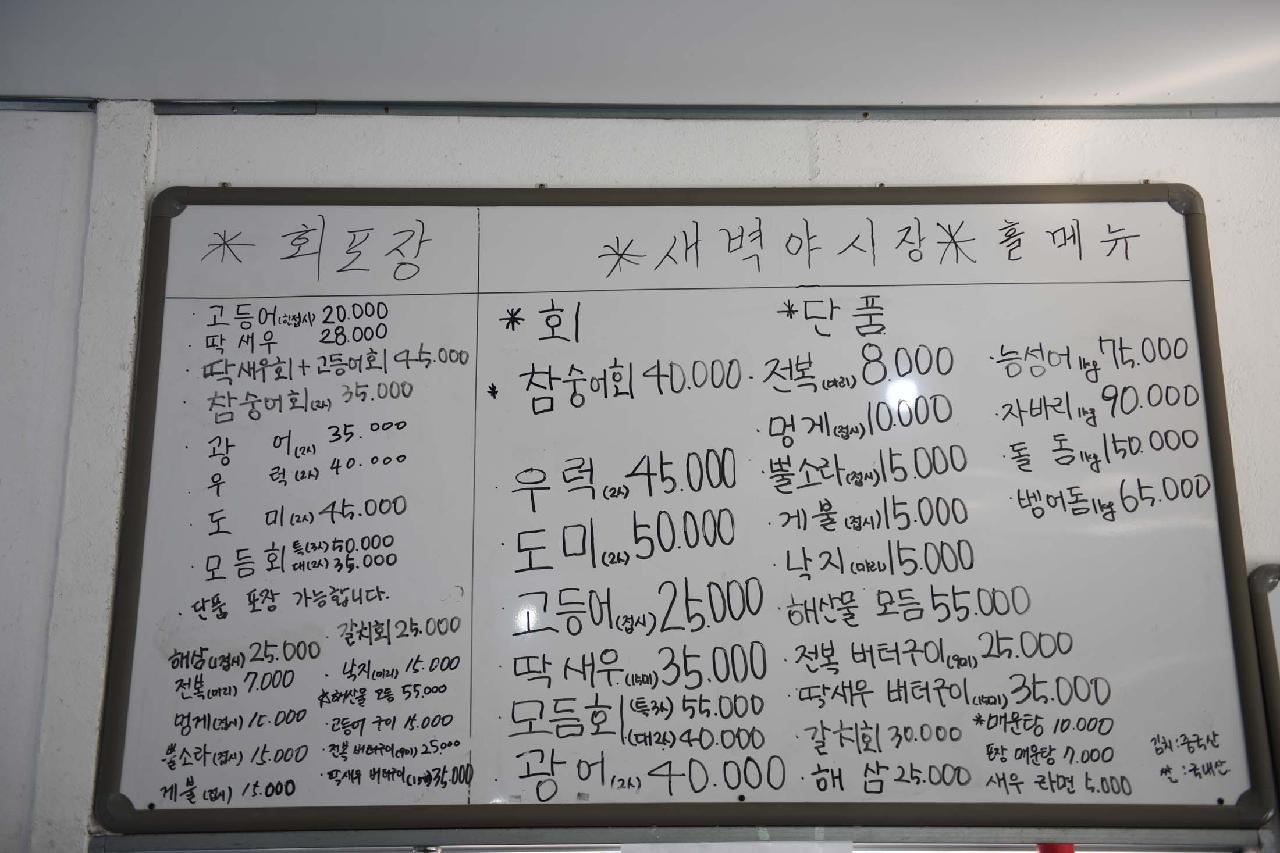 * 회포장
· 고등어(한접시) 20.000
· 딱새우 28.000
· 딱새우회+고등어회 45.000
· 참숭어회(2人) 35.000
· 광어(2人) 35.000
· 우럭(2人) 40.000
· 도미(2人) 45.000
· 모듬회 특(3人) 50.000
대(2人) 35.000
· 단품 포장 가능합니다.
해삼(1접시) 25.000
전복(마리) 7.000
멍게(접시) 10.000
뿔소라(접시) 15.000
게불(접시) 15.000
· 갈치회 25.000
· 낙지(마리) 15.000
*해산물 모듬 55.000
· 고등어 구이 15.000
· 전복 버터구이(9미) 25.000
· 딱새우 버터구이 35.000
*새벽야시장* 홀메뉴
* 회
* 참숭어회 40.000
· 우럭(2人) 45.000
· 도미(2人) 50.000
· 고등어(접시) 25.000
· 딱새우(15미) 35.000
· 모듬회(특3人) 55.000
(대2人) 40.000
· 광어(2人) 40.000
*단품
· 전복(마리) 8.000
· 멍게(접시) 10.000
· 뿔소라(접시) 15.000
· 게불(접시) 15.000
· 낙지(마리) 15.000
· 해산물 모듬 55.000
· 전복 버터구이(9미) 25.000
· 딱새우 버터구이(15미) 35.000
· 갈치회 30.000
· 해삼 25.000
· 능성어 1kg 75.000
· 자바리 1kg 90.000
· 돌돔 1kg 150.000
· 벵어돔 1kg 65.000
*매운탕 10.000
포장 매운탕 7.000
새우 라면 5.000
김치:중국산
쌀:국내산